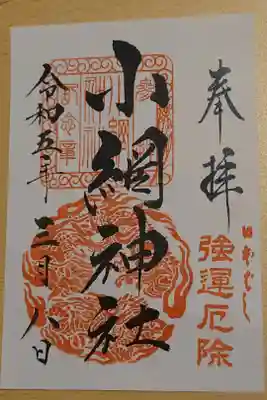 奉拝
日本ばし
強運厄除
小網神社
令和五年
三月八日